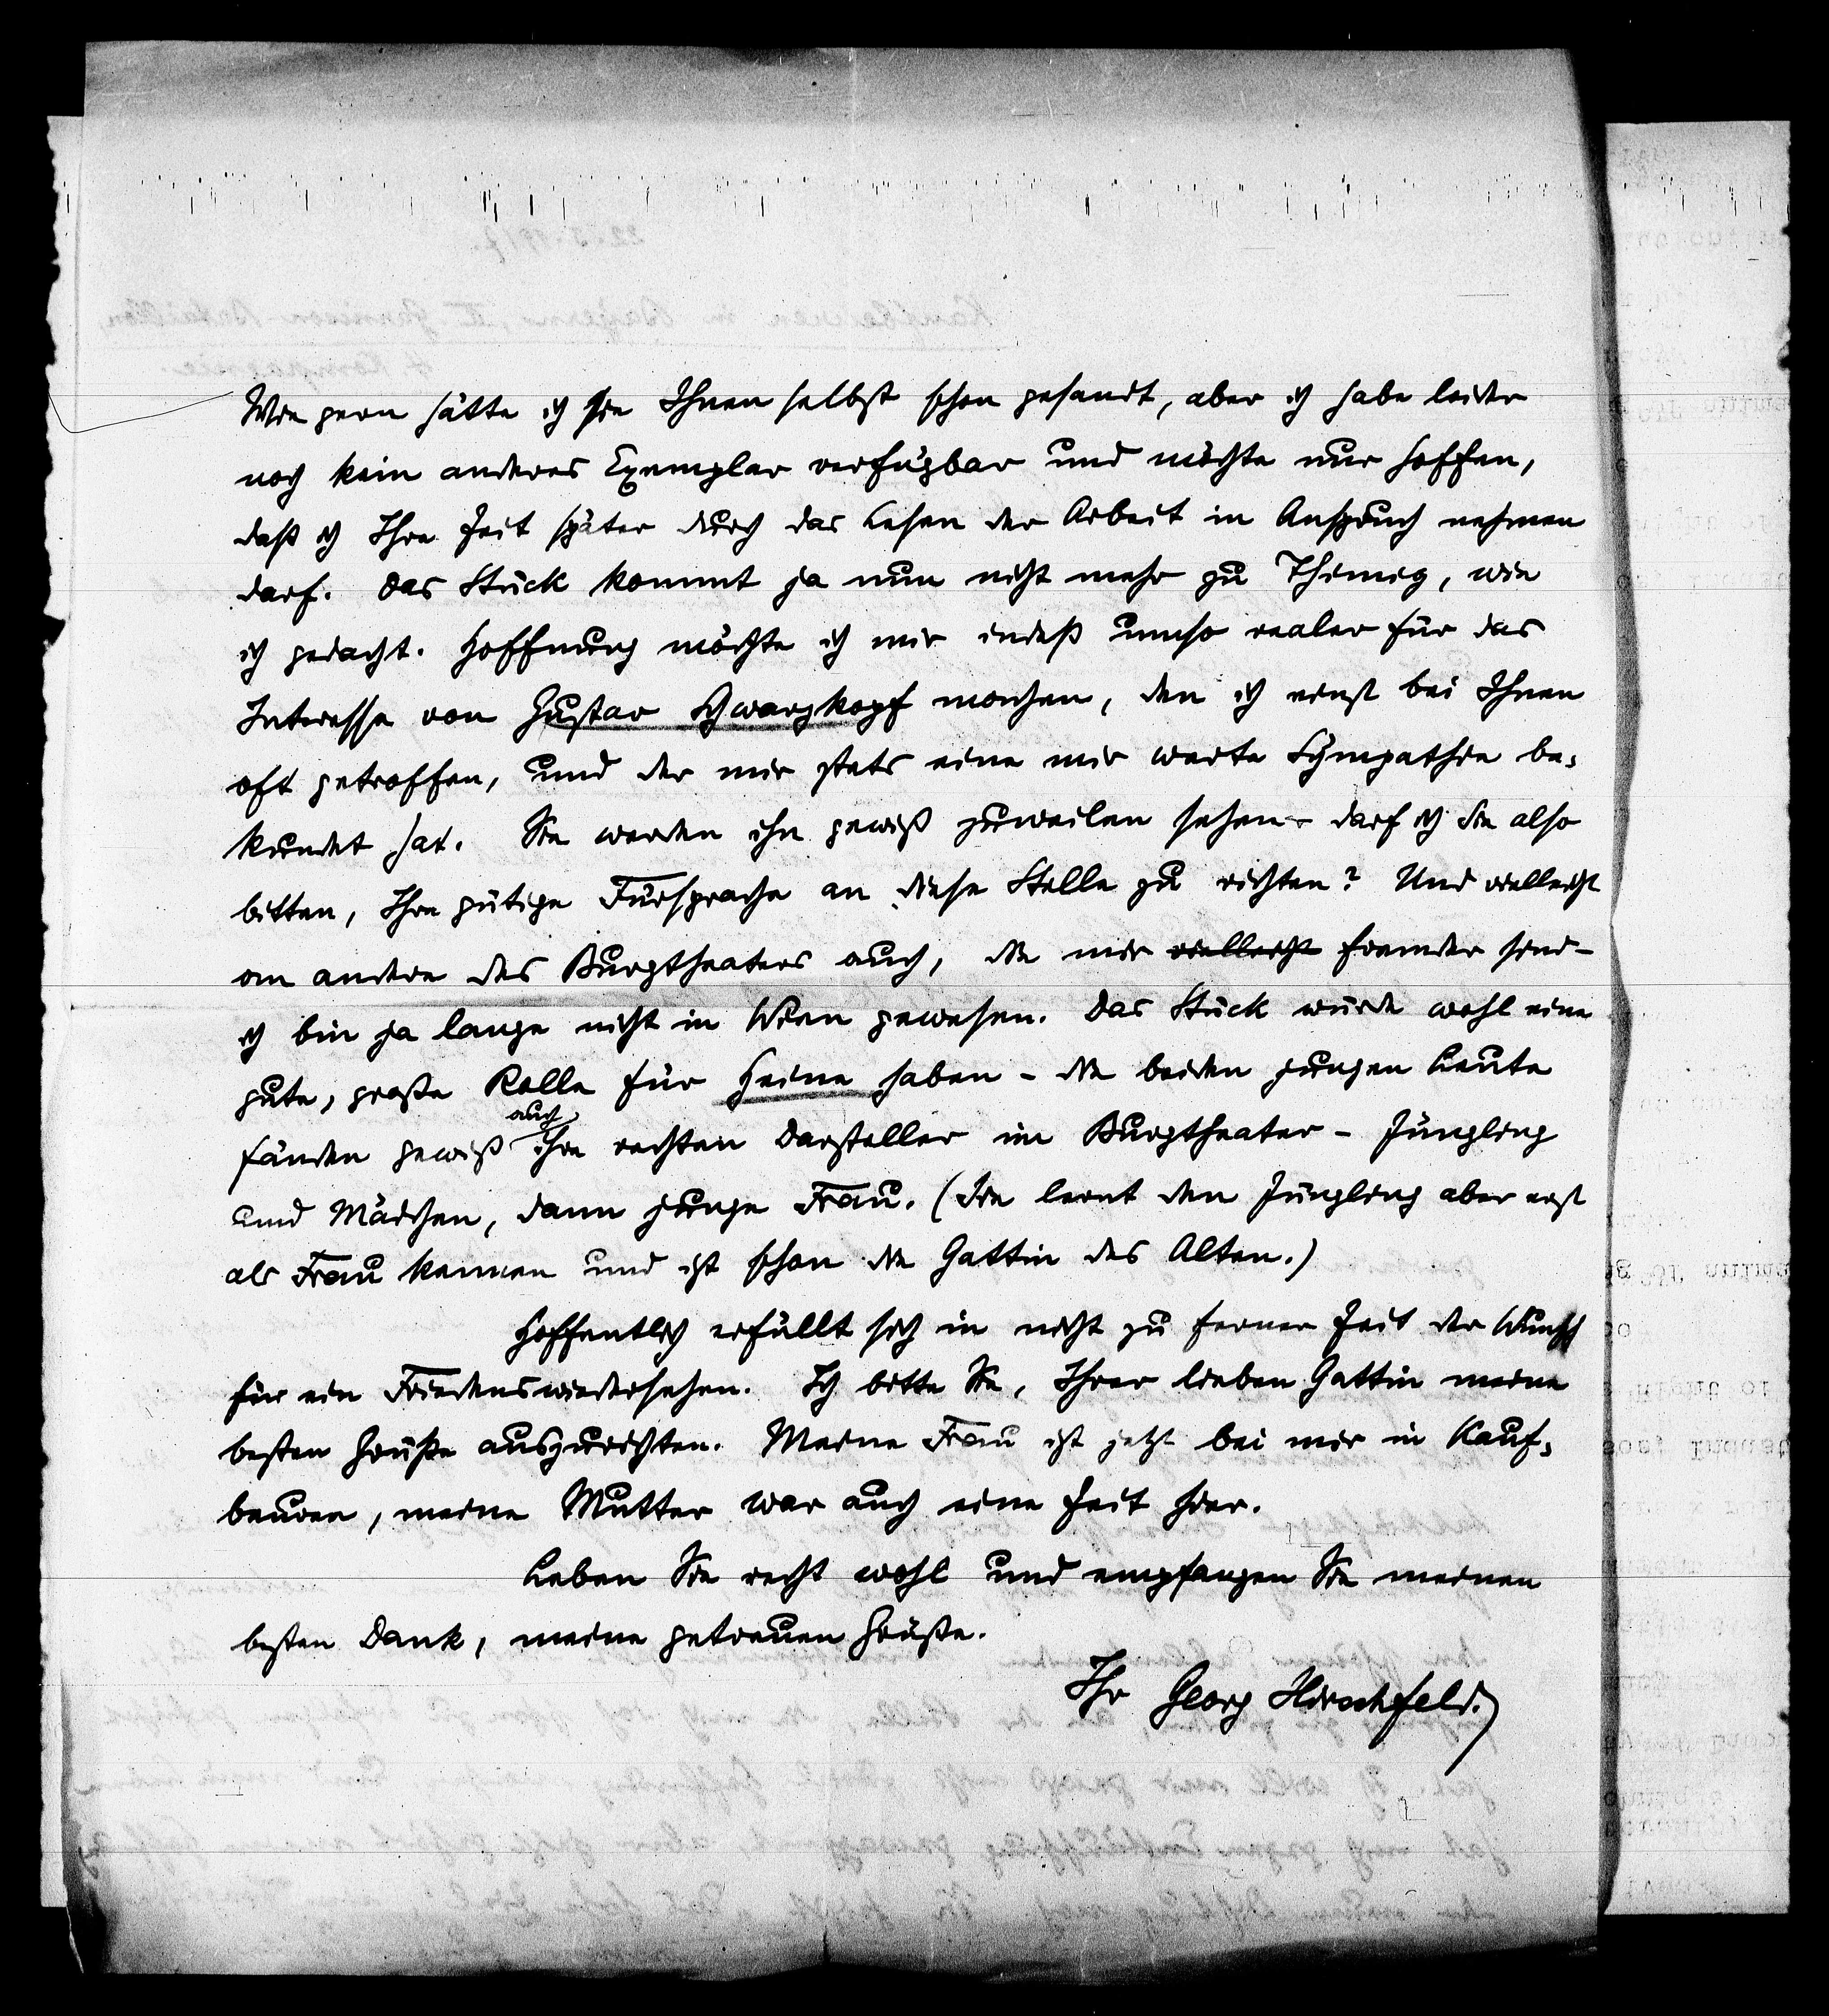 Wie gern hätte ich sie Ihnen selbst schon gesandt, aber ich habe leider
noch kein anderes Exemplar verfügbar und möchte nur hoffen,
daß ich Ihre Zeit später durch das Lesen der Arbeit in Anspruch nehmen
darf. Das Stück kommt ja nun nicht mehr zu Thimig, wie
ich gedacht. Hoffnung möchte ich mir indeß umso realer für das
Interesse von Gustav Schwarzkopf machen, den ich einst bei Ihnen
oft getroffen, und der mir stets eine mir werte Sympathie be-
kundet hat. Sie werden ihn gewiß zuweilen sehen – darf ich Sie also
bitten, Ihre gütige Fürsprache an diese Stelle zu richten? Und vielleicht
an andere des Burgtheaters auch, die mir vielleicht fremder sind –
ich bin ja lange nicht in Wien gewesen. Das Stück würde wohl eine
gute, große Rolle für Heine haben – die beiden jungen Leute
fänden gewiß auch ihre rechten Darsteller im Burgtheater – Jüngling
und Mädchen, dann junge Frau. (Sie lernt den Jüngling aber erst
als Frau kennen und ist schon die Gattin des Alten.)
Hoffentlich erfüllt sich in nicht zu ferner Zeit der Wunsch
für ein Friedenswiedersehen. Ich bitte Sie, Ihrer lieben Gattin meine
besten Grüße auszurichten. Meine Frau ist jetzt bei mir in Kauf-
beuren, meine Mutter war auch eine Zeit hier.
Leben Sie recht wohl und empfangen Sie meinen
besten Dank, meine getreuen Grüße.
Ihr Georg Hirschfeld.